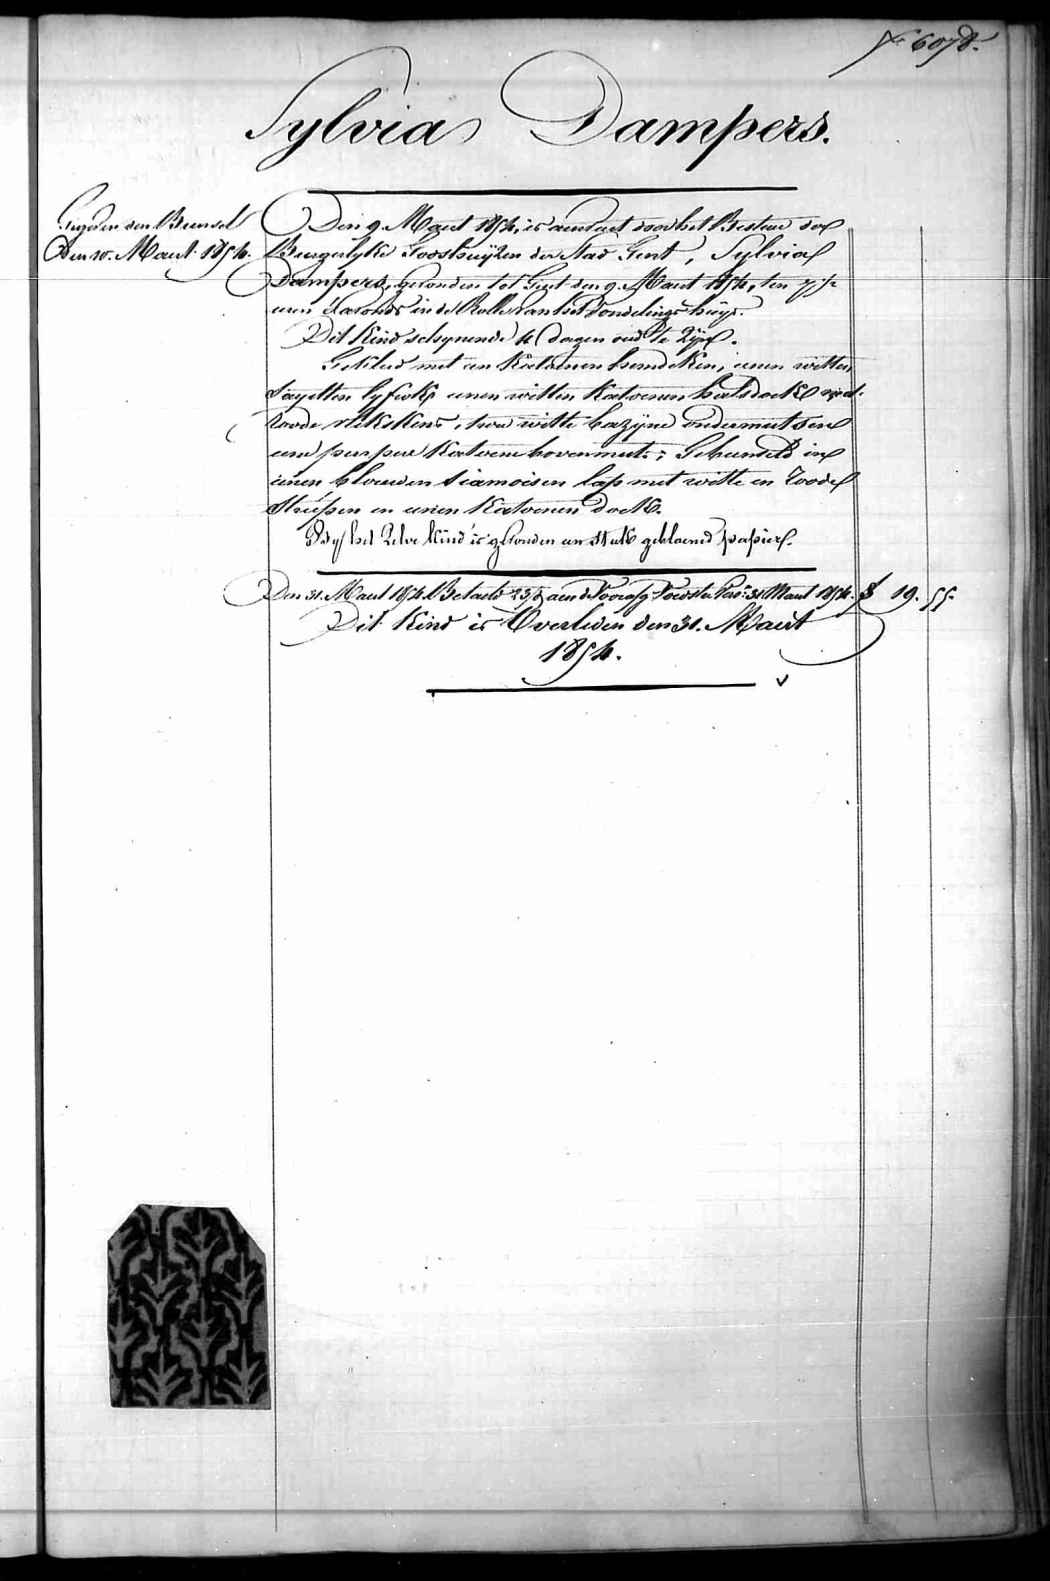 N° 6078.
Sylvia Dampers.
Den 10. Maert 1854.
Den 9. Maert 1854, is aenvaert door het Bestuer der
Burgerlyke Godshuyzen der Stad Gent, Sylvia
Dampers, gevonden tot Gent den 9. Maert 1854, ten 7 ½
uren 's avonds in de Rolle van het Vondelings huys.
Dit Kind schynende 4 dagen oud te zyn.
Gekleed met een Katoenen hemdeken, eenen witten
Sayetten lyfrok, eenen witten Katoenen halsdoek met
roode , twee witte bazyne ondermutsen
eene purpere Katoene bovenmuts; Gebunseld in
eenen blauwen siamoisen lap met witte en roode
Streépen en eenen Katoenen doek.
By het Zelve kind is gevonden een Stuk gebloemd papier.
Den 31. Maert 1854 Betaeld aen de Voedster 31 Maert 1854. 19. 55.
Dit Kind is Overleden den 31. Maert
1854.